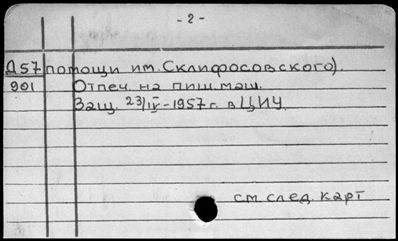 - 2 -
Д57 помощи им. Склифосовского).
901 Отпеч. на пиш. маш.
Защ. 23/IV-1957 г. в ЦИУ.
см. след. карт